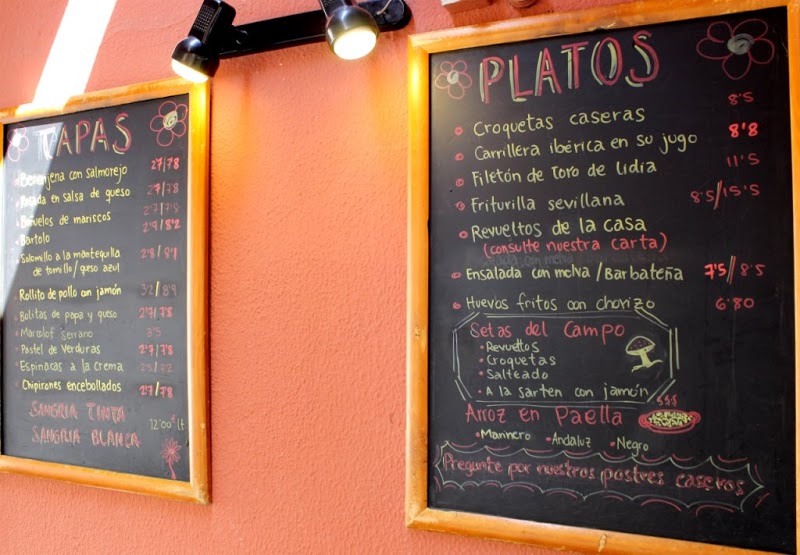 TAPAS
Berenjena con salmorejo 2'7/7'8
Rosada en salsa de queso 2'7/7'8
Buñuelos de mariscos 2'7/7'8
Bartolo 2'9/8'2
Solomillo a la mantequilla 2'8/8'1
de tomillo/queso azul
Rollito de pollo con jamón 3'2/8'9
Bolitas de papa y queso 2'7/7'8
Serrano 3'5
Pastel de verduras 2'7/7'8
Espinacas a la crema 2'5/7'2
Chipirones encebollados 2'7/7'8
SANGRIA TINTA
12'00€ lt
SANGRIA BLANCA
PLATOS
Croquetas caseras 8'5
Carrillera ibérica en su jugo 8'8
Filetón de toro de lidia 11'5
Friturilla sevillana 8'5/15'5
Revueltos de la casa
(consulte nuestra carta)
Ensalada con melva/Barbateña 7'5/8'5
Huevos fritos con chorizo 6'80
Setas del Campo
• Revueltos
• Croquetas
• Salteado
• A la sarten con jamón
Arroz en Paella
• Marinero • Andaluz • Negro
Pregunte por nuestros postres caseros